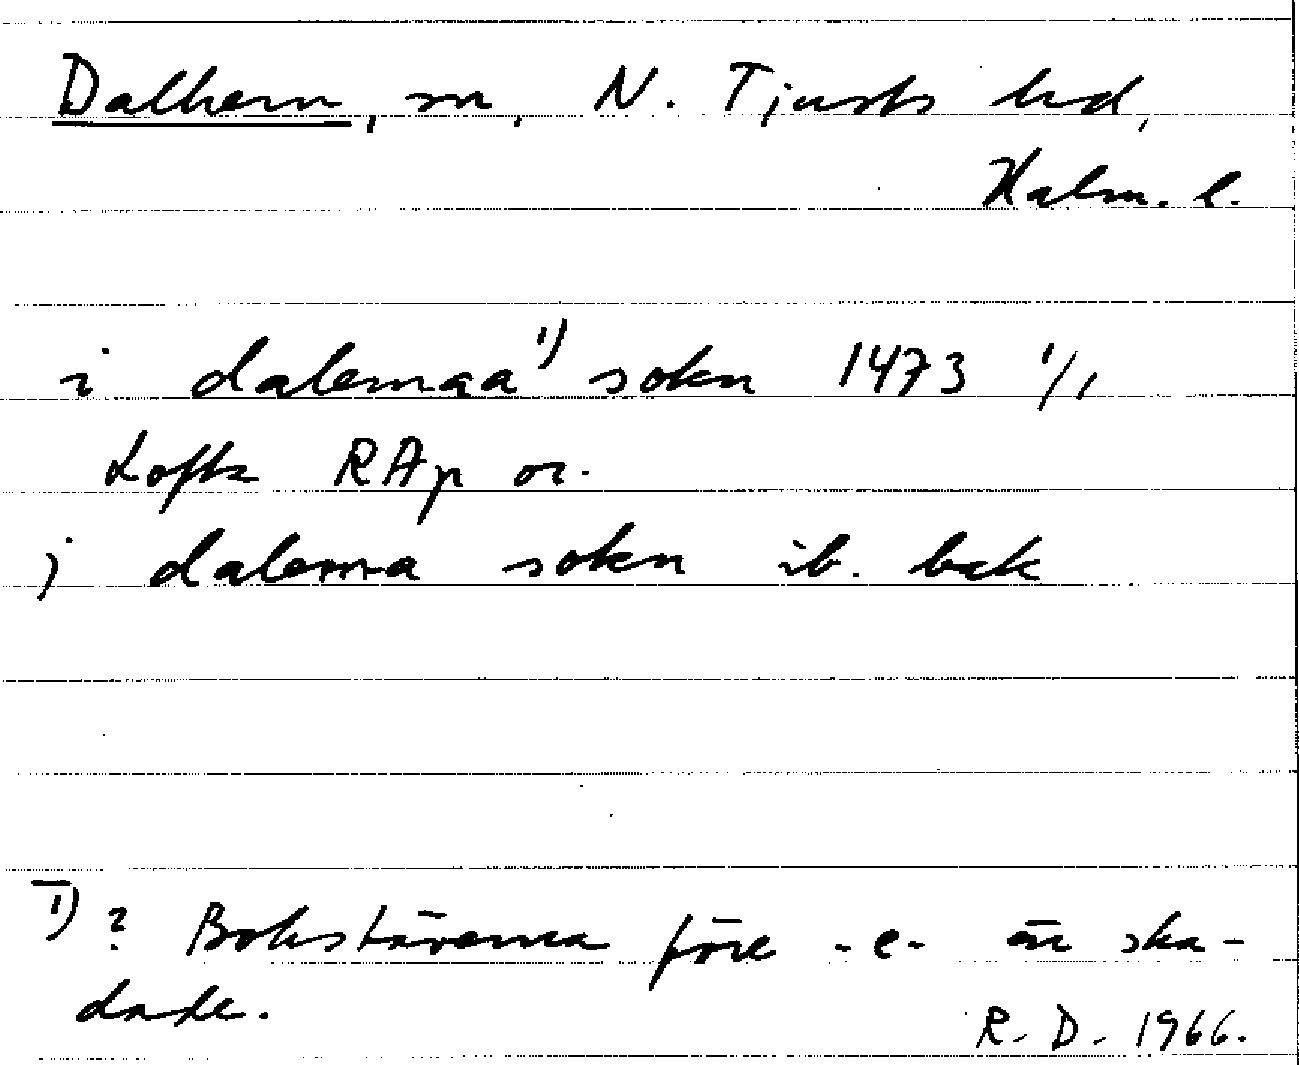 Dalhem, sn, N. Tjusts hd,
Kalm. l.
i dalemaa¹⁾ sokn 1473 1/1
Lofta RAp or.
j dalema sokn ib. bak
1) ? Bokstäverna före -e- är ska-
dade.
R. D. 1966.